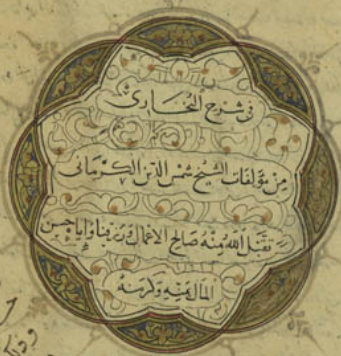 في شرح البخاري
من مؤلفات الشيخ شمس الدين الكرماني
تقبل الله منه صالح الاعمال ورزقنا واياه حسن
المال بمنه وكرمه